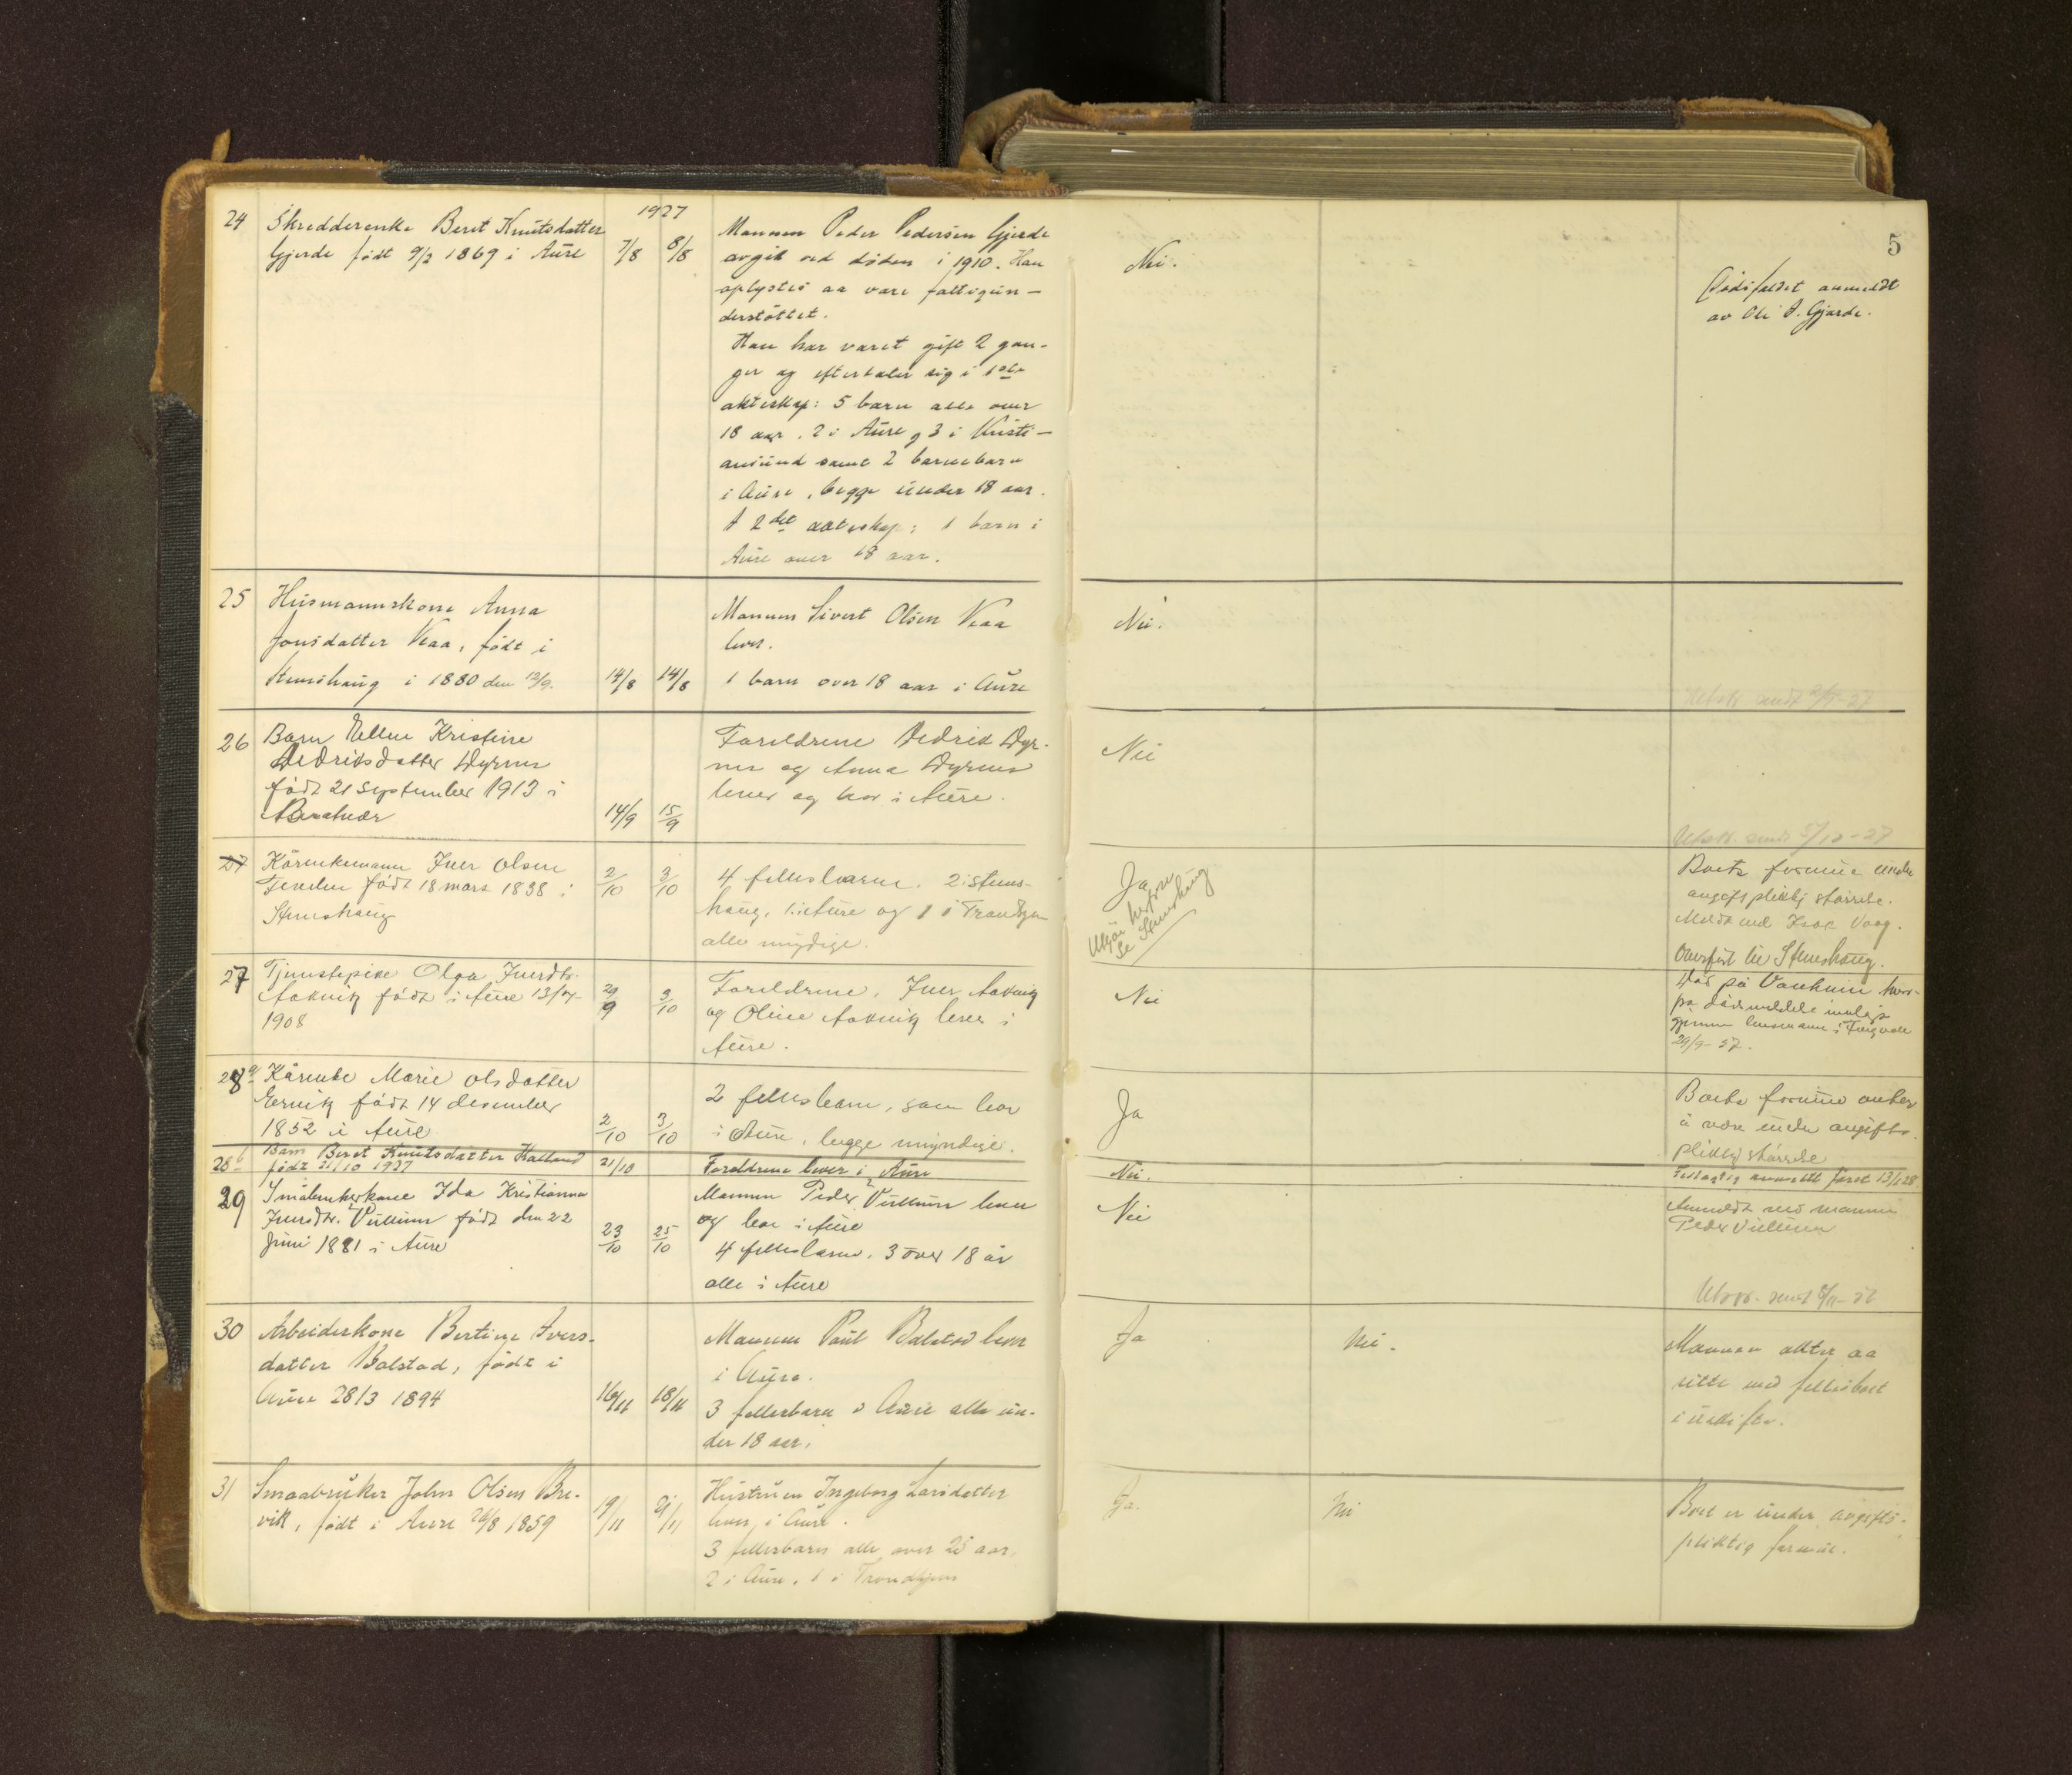 1927
5
24 Skredderenke Beret Knutsdatter
Gjerde født 9/2 1869 i Aure 7/8 8/8
Mannen Peder Pedersen Gjerde
avgik ved døden i 1910. Han
oplystes aa være fattigun-
derstøttet.
Han har været gift 2 gan-
ger og efterlater sig i 1ste
ekteskap: 5 barn alle over
18 aar. 2 i Aure og 3 i Kristi-
ansund samt 2 barnebarn
i Aure, begge under 18 aar.
I 2det ekteskap: 1 barn i
Aure over 18 aar.
Nei.
Dødsfaldet anmeldt
av Ole P. Gjerde.
25 Husmannskone Anna
Jonsdatter Vaa, født i
Stemshaug i 1880 den 12/9. 14/8 14/8
Mannen Sivert Olsen Vaa
lever.
1 barn over 18 aar i Aure
Nei.
26 Barn Ellen Kristine
Dedriksdatter Dyrnes
født 21 september 1913 i
14/9 15/9
Foreldrene Dedrik Dyr-
nes og Anna Dyrnes
lever og bor i Aure.
Nei
sendt 5/10-27
27 Kårenkemann Iver Olsen
født 18 mars 1838 i
Stemshaug
2/10 3/10
4 fellesbarn. 2 i Stems-
haug, 1 i Aure og 1 i Trondhjem
alle myndige.
Ja
Utgår herfra
Se Stemshaug
Boets formue under
avgiftspliktig størrelse.
Meldt ved Isak Vaag.
Overført til Stemshaug.
27 Tjenestepike Olga Iversdtr.
Aakvik født i Aure 13/
1908
29/9 3/10
Foreldrene, Iver Aakvik
og Oline Aakvik lever i
Aure.
Nei
Død på
på dødsmeldele
gjennem lensmannen i
29/9-27.
28a Kårenke Marie Olsdatter
Ervik født 14 desember
1852 i Aure 2/10 3/10
2 fellesbarn, som bor
i Aure, begge myndige.
Ja
Boets formue antas
å være under avgifts-
pliktig størrelse
28b Barn Beret Knutsdatter
født 21/10 1927 21/10
Foreldrene lever i Aure
Nei.
anmeldt først 13/1 28
29 Småbrukerkone Ida Kristianna
Iversdtr. Vullum født den 22
Juni 1881 i Aure 23/10 25/10
Mannen Peder Vullum lever
og bor i Aure
4 fellesbarn, 3 over 18 år
alle i Aure
Nei
Anmeldt ved mannen
Peder Vullum
30 Arbeiderkone Bertine Ivers-
datter Balstad, født i
Aure 28/3 1894 16/11 18/11
Mannen Paul Balstad lever
i Aure.
3 fellesbarn i Aure alle un-
der 18 aar.
Ja
Nei.
Mannen akter aa
sitte med fellesboet
i uskifte.
31 Smaabruker John Olsen Bre-
vik, født i Aure 26/8 1859 19/11 21/11
Hustruen Ingeborg Larsdatter
lever i Aure.
3 fellesbarn alle over 25 aar.
2 i Aure, 1 i Trondhjem
Ja.
Nei
Boet er under avgifts-
pliktig formue.